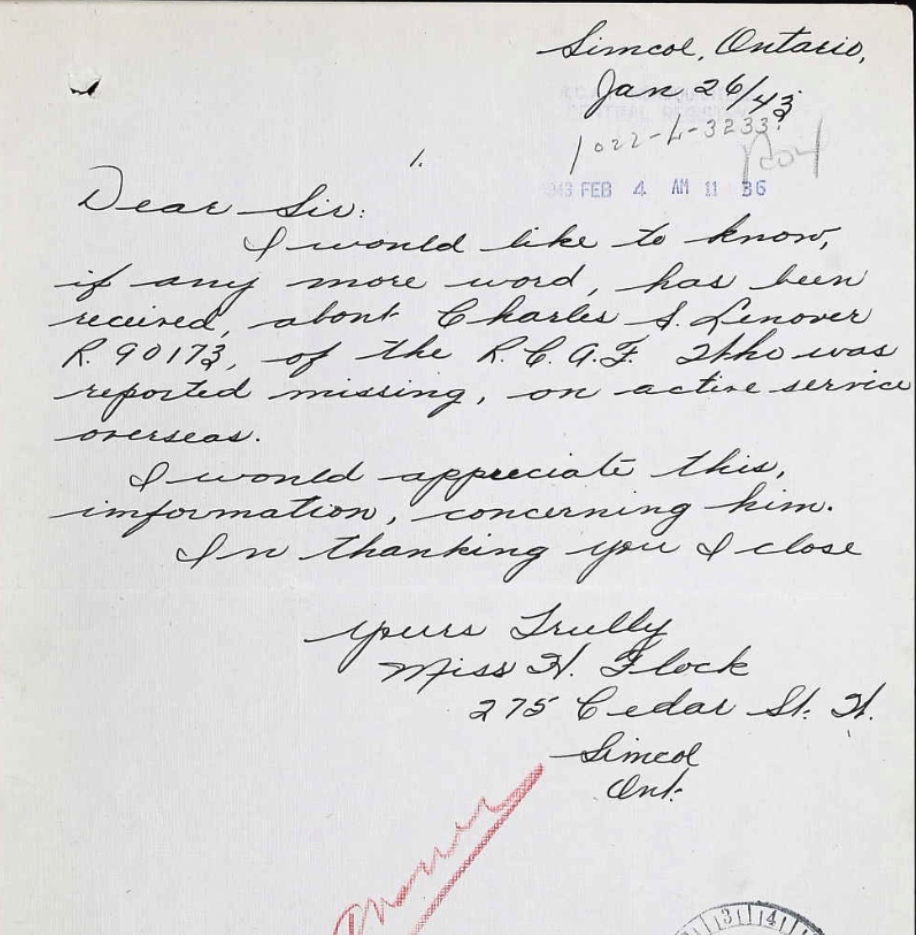 Simcoe, Ontario,
Jan 26/43
1022-L-3233
1.
1943 FEB 4 AM 11 36
Dear Sir:
I would like to know,
if any more word, has been
received, about Charles S. Lenover
R. 90173, of the R.C.A.F. Who was
reported missing, on active service
overseas.
I would appreciate this,
imformation, concerning him.
In thanking you I close
Yours Trully
Miss H. Flock
275 Cedar St. H.
Simcoe
Ont.
3 4